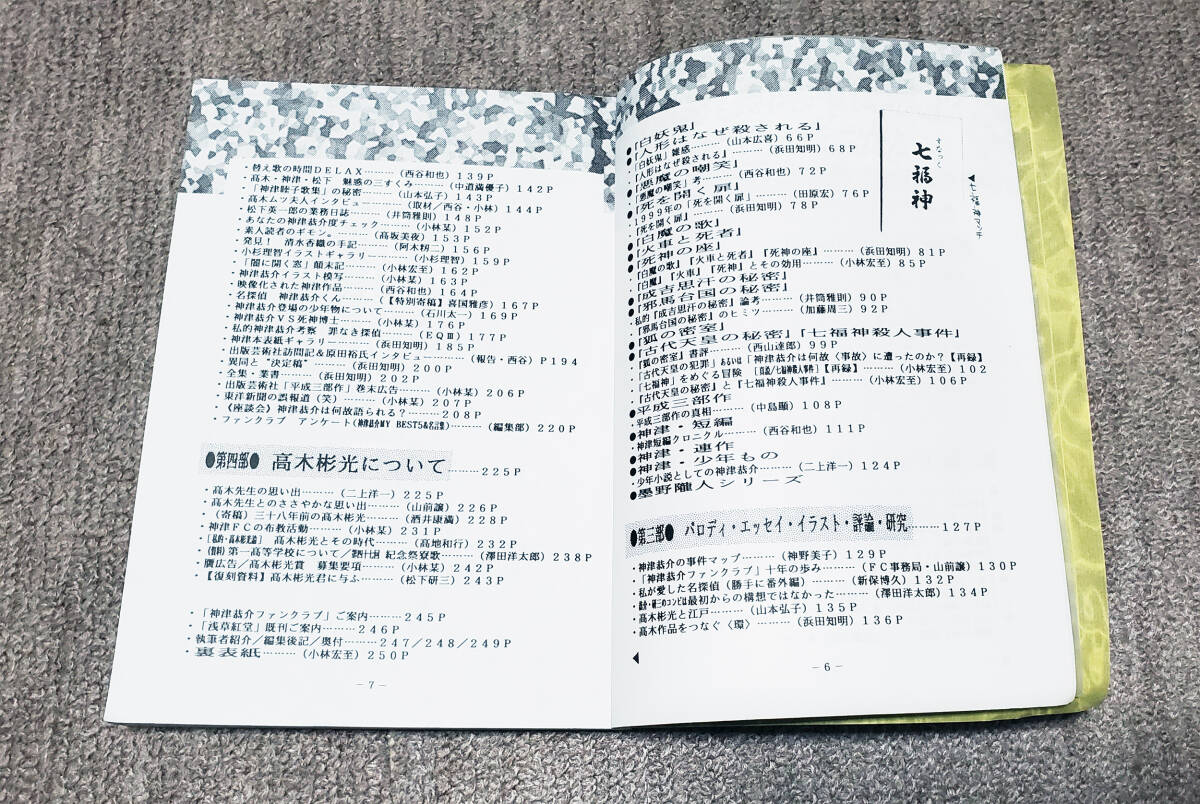 「白妖鬼」
●「人形はなぜ殺される」
・「白妖鬼」雑感………(山本広喜) 66P
・「人形はなぜ殺される」………(浜田知明) 68P
●「悪魔の嘲笑」
・「悪魔の嘲笑」考………(西谷和也) 72P
●「死を開く扉」
・1999年の「死を開く扉」………(田原宏) 76P
・「死を開く扉」………(浜田知明) 78P
●「白魔の歌」
●「火車と死者」
●「死神の座」
・「白魔の歌」『火車と死者』『死神の座』………(浜田知明) 81P
・「白魔」「火車」「死神」とその効用………(小林宏至) 85P
●「成吉思汗の秘密」
●「邪馬台国の秘密」
・私的『成吉思汗の秘密』論考………(井筒雅則) 90P
・「邪馬台国の秘密」のヒミツ………(加藤周三) 92P
●「狐の密室」
●「古代天皇の秘密」「七福神殺人事件」
・「狐の密室」書評………(西山達郎) 99P
・「古代天皇の犯罪」あるいは「神津恭介は何故〈事故〉に遭ったのか?【再録】
・「七福神」をめぐる冒険 【再録】………(小林宏至) 102
・「古代天皇の秘密」と『七福神殺人事件』………(小林宏至) 106P
●平成三部作
・平成三部作の真相………(中島顯) 108P
●神津・短編
・神津短編クロニクル………(西谷和也) 111P
●神津・連作
●神津・少年もの
・少年小説としての神津恭介………(二上洋一) 124P
●墨野隴人シリーズ
●第三部● パロディ・エッセイ・イラスト・評論・研究………127P
・神津恭介の事件マップ………(神野美子) 129P
・「神津恭介ファンクラブ」十年の歩み………(FC事務局・山前譲) 130P
・私が愛した名探偵(勝手に番外編)………(新保博久) 132P
・恭介・研三のコンビは最初からの構想ではなかった………(澤田洋太郎) 134P
・高木彬光と江戸………(山本弘子) 135P
・高木作品をつなぐ〈環〉………(浜田知明) 136P
七福神
－6－
・替え歌の時間DELAX………(西谷和也) 139P
・高木・神津・松下 魅惑の三すくみ………(中道満優子) 142P
・「神津睦子歌集」の秘密………(山本弘子) 143P
・高木ムツ夫人インタビュー………(取材/西谷・小林) 144P
・松下英一郎の業務日誌………(井筒雅則) 148P
・あなたの神津恭介度チェック………(小林某) 152P
・素人読者のギモン。………(高坂美夜) 153P
・発見! 清水香織の手記………(阿木耕二) 156P
・小杉理智イラストギャラリー………(小杉理智) 159P
・「闇に開く窓」顛末記………(小林宏至) 162P
・神津恭介イラスト模写………(小林某) 163P
・映像化された神津作品………(西谷和也) 164P
・名探偵 神津恭介くん………(【特別寄稿】喜国雅彦) 167P
・神津恭介登場の少年物について………(石川太一) 169P
・神津恭介VS死神博士………(小林某) 176P
・私的神津恭介考察 罪なき探偵………(EQⅢ) 177P
・神津本表紙ギャラリー………(浜田知明) 185P
・出版芸術社訪問記&原田裕氏インタビュー………(報告・西谷) P194
・異同と"決定稿"………(浜田知明) 200P
・全集・叢書………(浜田知明) 202P
・出版芸術社「平成三部作」巻末広告………(小林某) 206P
・東洋新聞の誤報道(笑)………(小林某) 207P
・《座談会》神津恭介は何故語られる?………208P
・ファンクラブ アンケート(神津恭介MY BEST5&名言集)………(編集部) 220P
●第四部● 高木彬光について………225P
・高木先生の思い出………(二上洋一) 225P
・高木先生とのささやかな思い出………(山前譲) 226P
・(寄稿) 三十八年前の高木彬光………(酒井康満) 228P
・神津FCの布教活動………(小林某) 231P
・高木彬光とその時代………(高地和行) 232P
・第一高等学校について/ 紀念祭寮歌………(澤田洋太郎) 238P
・贋広告/高木彬光賞 募集要項………(小林某) 242P
・【復刻資料】高木彬光君に与ふ………(松下研三) 243P
・「神津恭介ファンクラブ」ご案内………245P
・「浅草紅堂」既刊ご案内………246P
・執筆者紹介/編集後記/奥付………247/248/249P
・裏表紙………(小林宏至) 250P
－7－